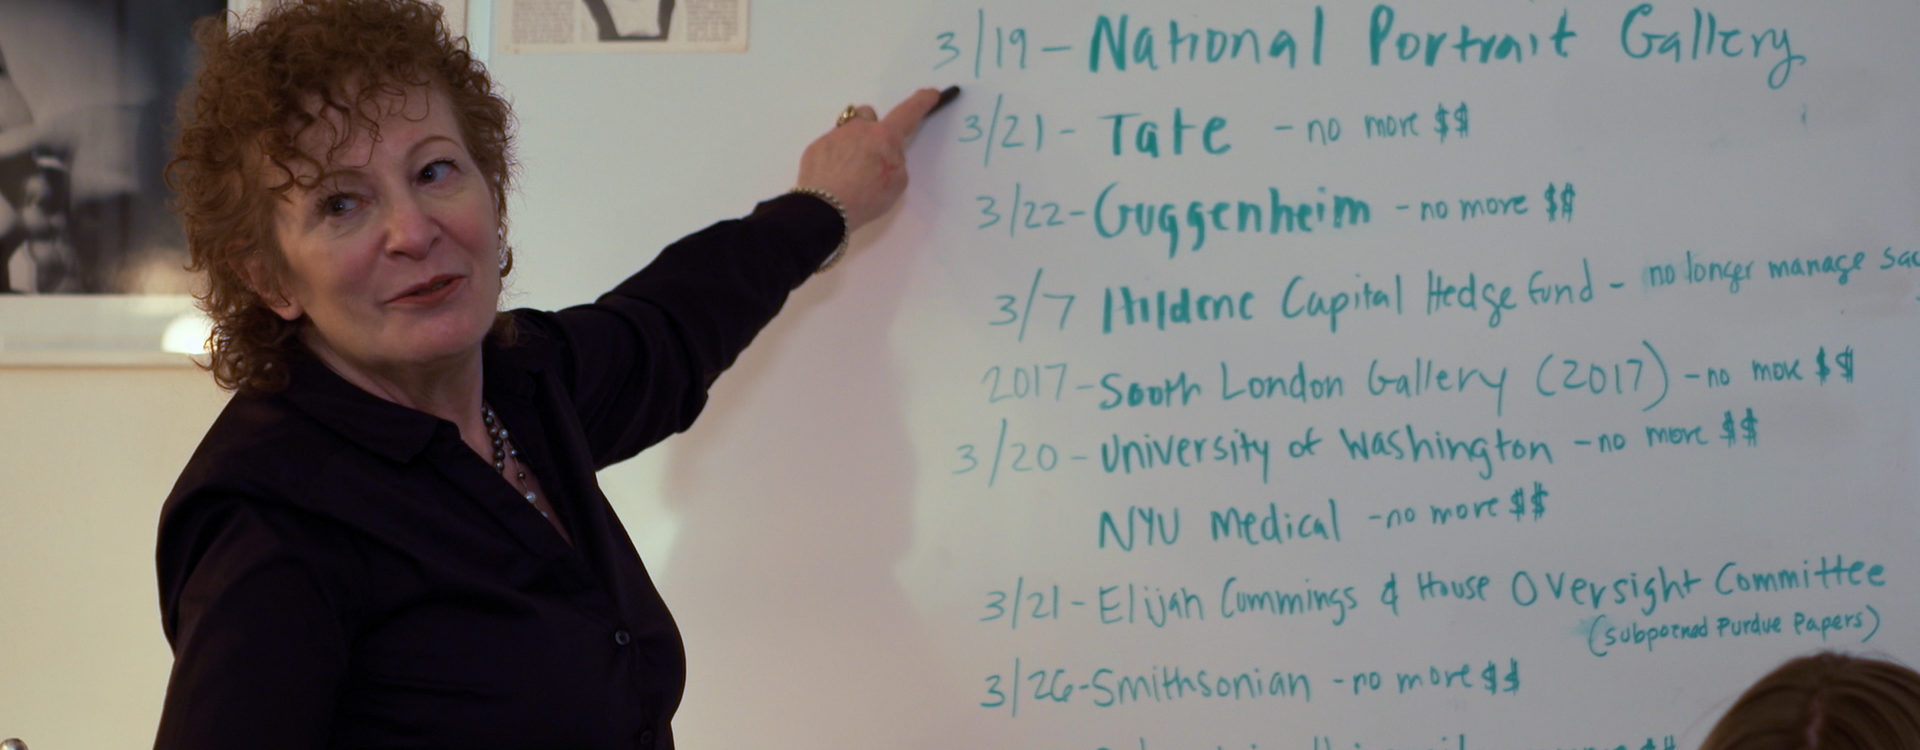 3/19 - National Portrait Gallery
3/21 - Tate - no more $$
3/22 - Guggenheim - no more $$
3/7 Hildene Capital Hedge Fund - no longer manage sac
2017 - South London Gallery (2017) - no more $$
3/20 - University of Washington - no more $$
NYU Medical - no more $$
3/21 - Elijah Cummings & House Oversight Committee
(subpoenaed Purdue Papers)
3/26 - Smithsonian - no more $$